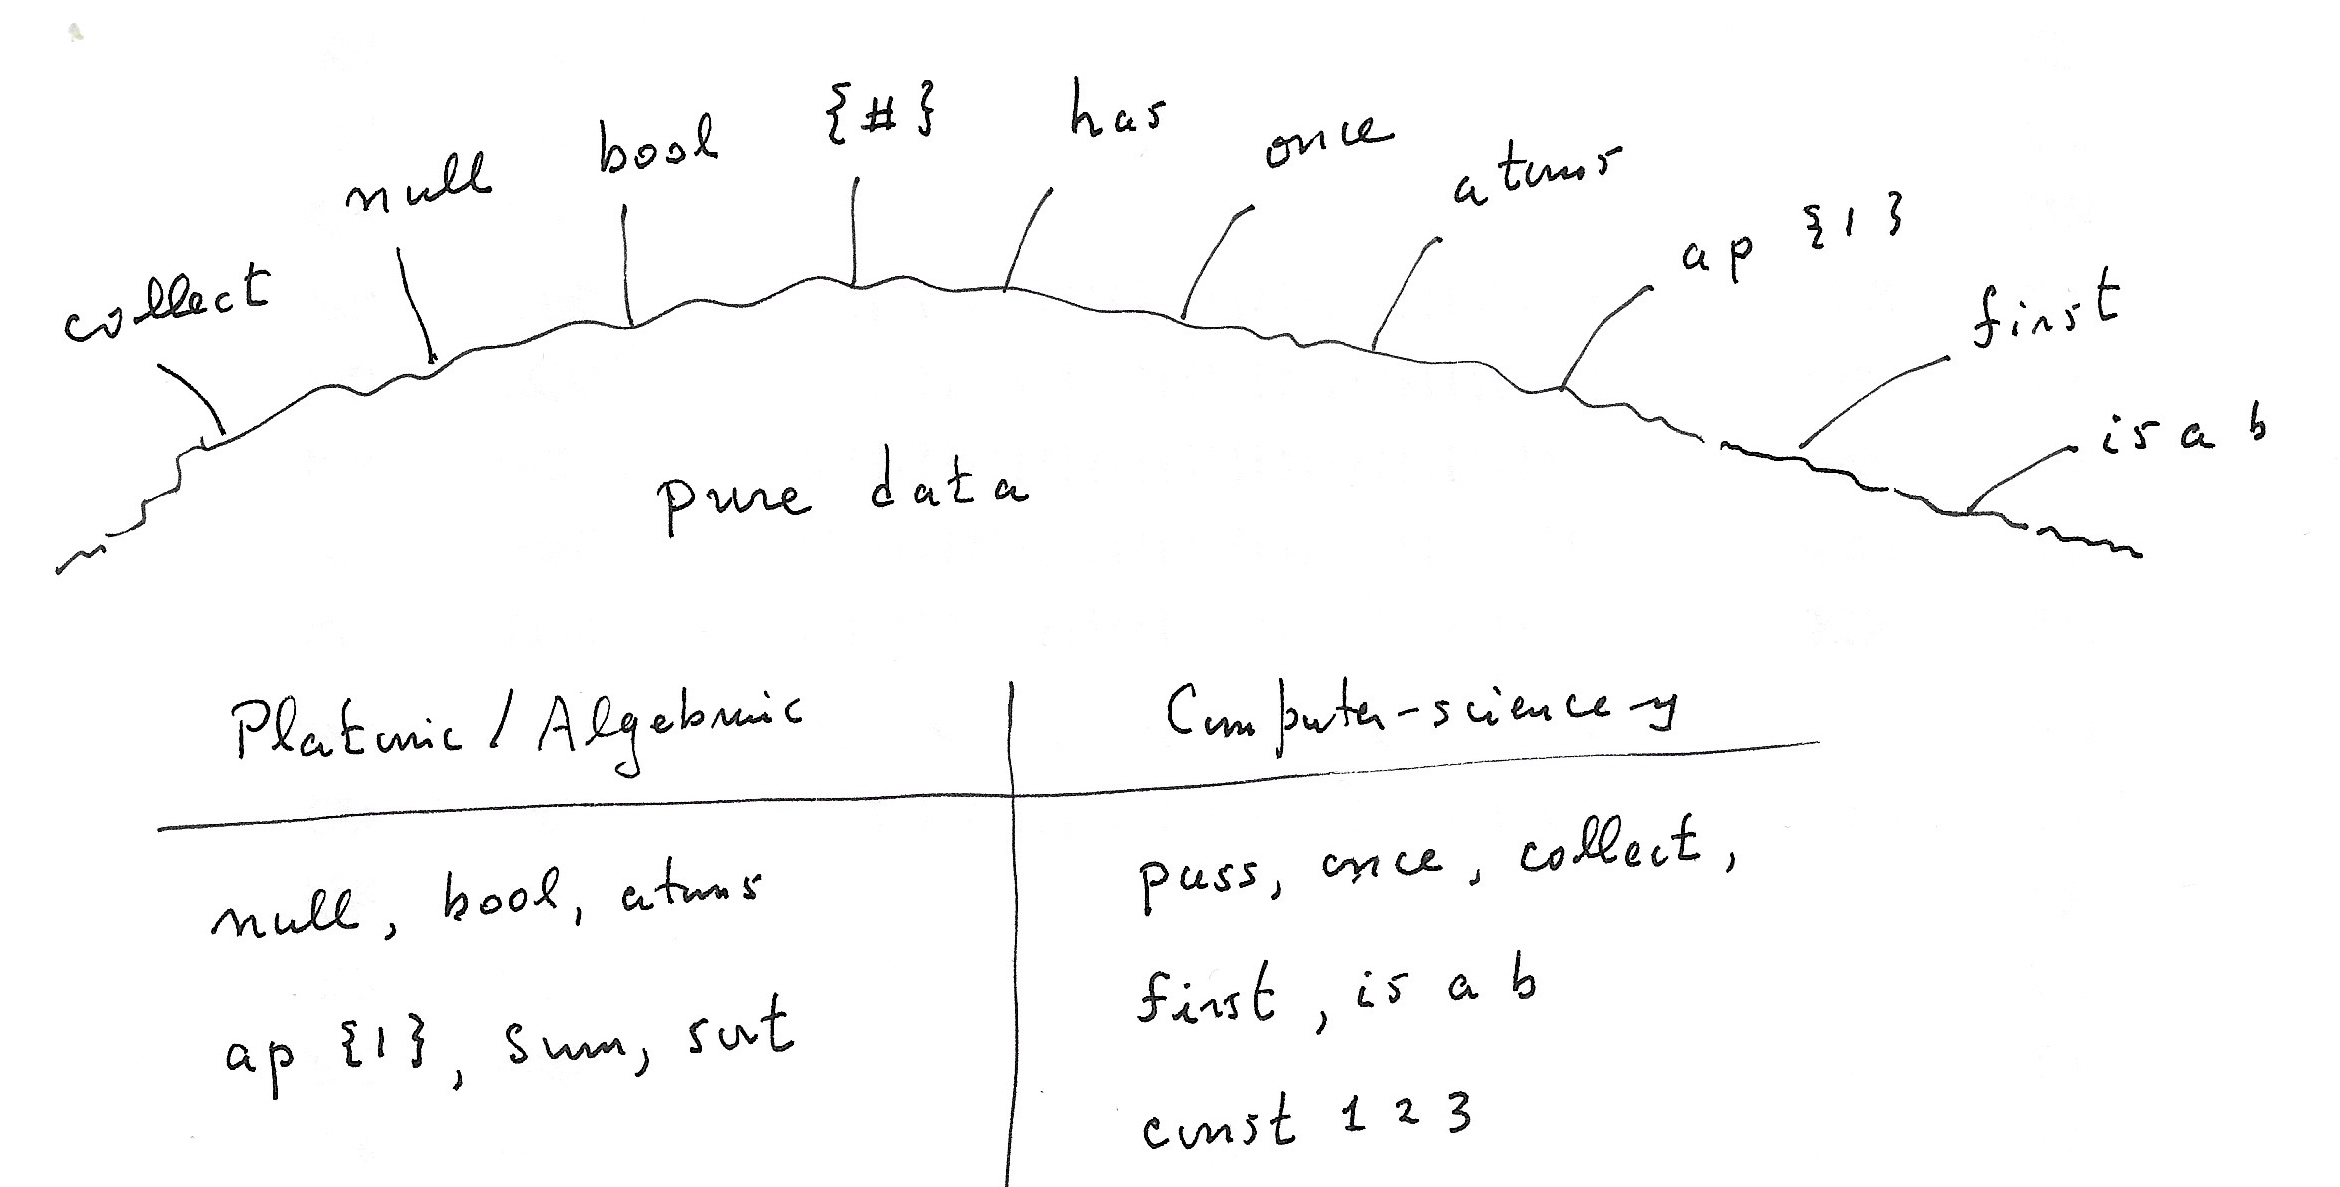 collect
null
bool
{#}
has
once
atoms
ap {1}
first
is a b
pure data
Platonic / Algebraic
Computer-science-y
null, bool, atoms
pass, once, collect,
ap {1}, sum, sort
first, is a b
const 1 2 3